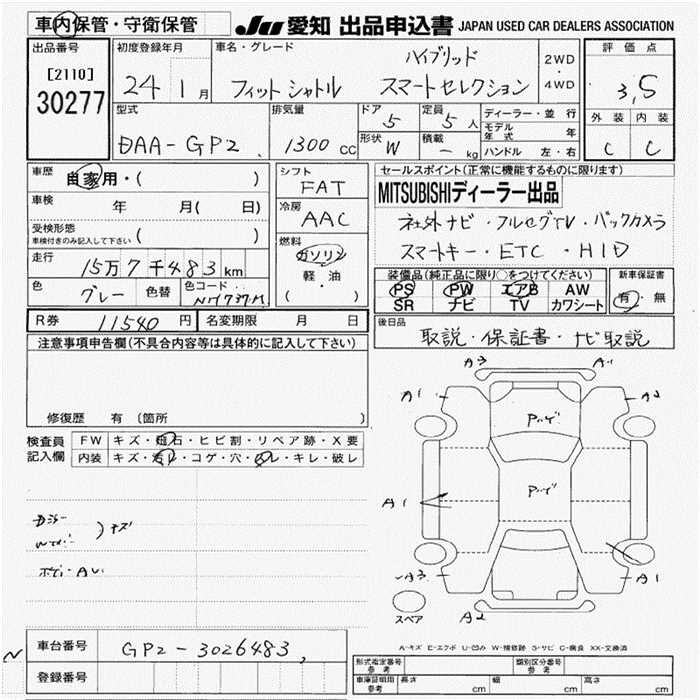 車内保管・守衛保管
JU 愛知 出品申込書 JAPAN USED CAR DEALERS ASSOCIATION
出品番号 初度登録年月 車名・グレード 評価点
[2110] 30277
24 1月 フィット シャトル ハイブリッド スマートセレクション 2WD・4WD 3,5
型式 排気量 ドア 定員 ディーラー・並行 外装 内装
DAA-GP2 1300cc 5 5人 モデル年式 年 C C
形状 W 積載 - kg ハンドル 左・右
車歴 自家用・( ) シフト FAT
セールスポイント(正常に機能するものに限ります)
MITSUBISHIディーラー出品
車検 年 月( 日) 冷房 AAC
社外ナビ・フルセグTV・バックカメラ
受検形態 車検付きのみ記入して下さい ( )
スマートキー・ETC・HID
走行 15万7千483km 燃料 ガソリン 軽・油 ( )
装備品(純正品に限り○をつけてください) 新車保証書
PS PW エアB AW 有・無
SR ナビ TV カワシート
色 グレー 色替 色コード NH737M
R券 11540円 名変期限 月 日
後日品
取説・保証書・ナビ取説
注意事項申告欄(不具合内容等は具体的に記入して下さい)
修復歴 有 (箇所 )
検査員記入欄 FW キズ・飛石・ヒビ割・リペア跡・X要
内装 キズ・汚レ・コゲ・穴・スレ・キレ・破レ
キズ
A3
A1 A2
A1
A3 A1
A2
スペア
A-キズ E-エクボ U-凹み W-補修跡 S-サビ C-腐食 XX-交換済
車台番号 GP2-3026483
登録番号
形式指定番号 参考 類別区分番号 参考
車庫証明用 参考 長さ cm 幅 cm 高さ cm